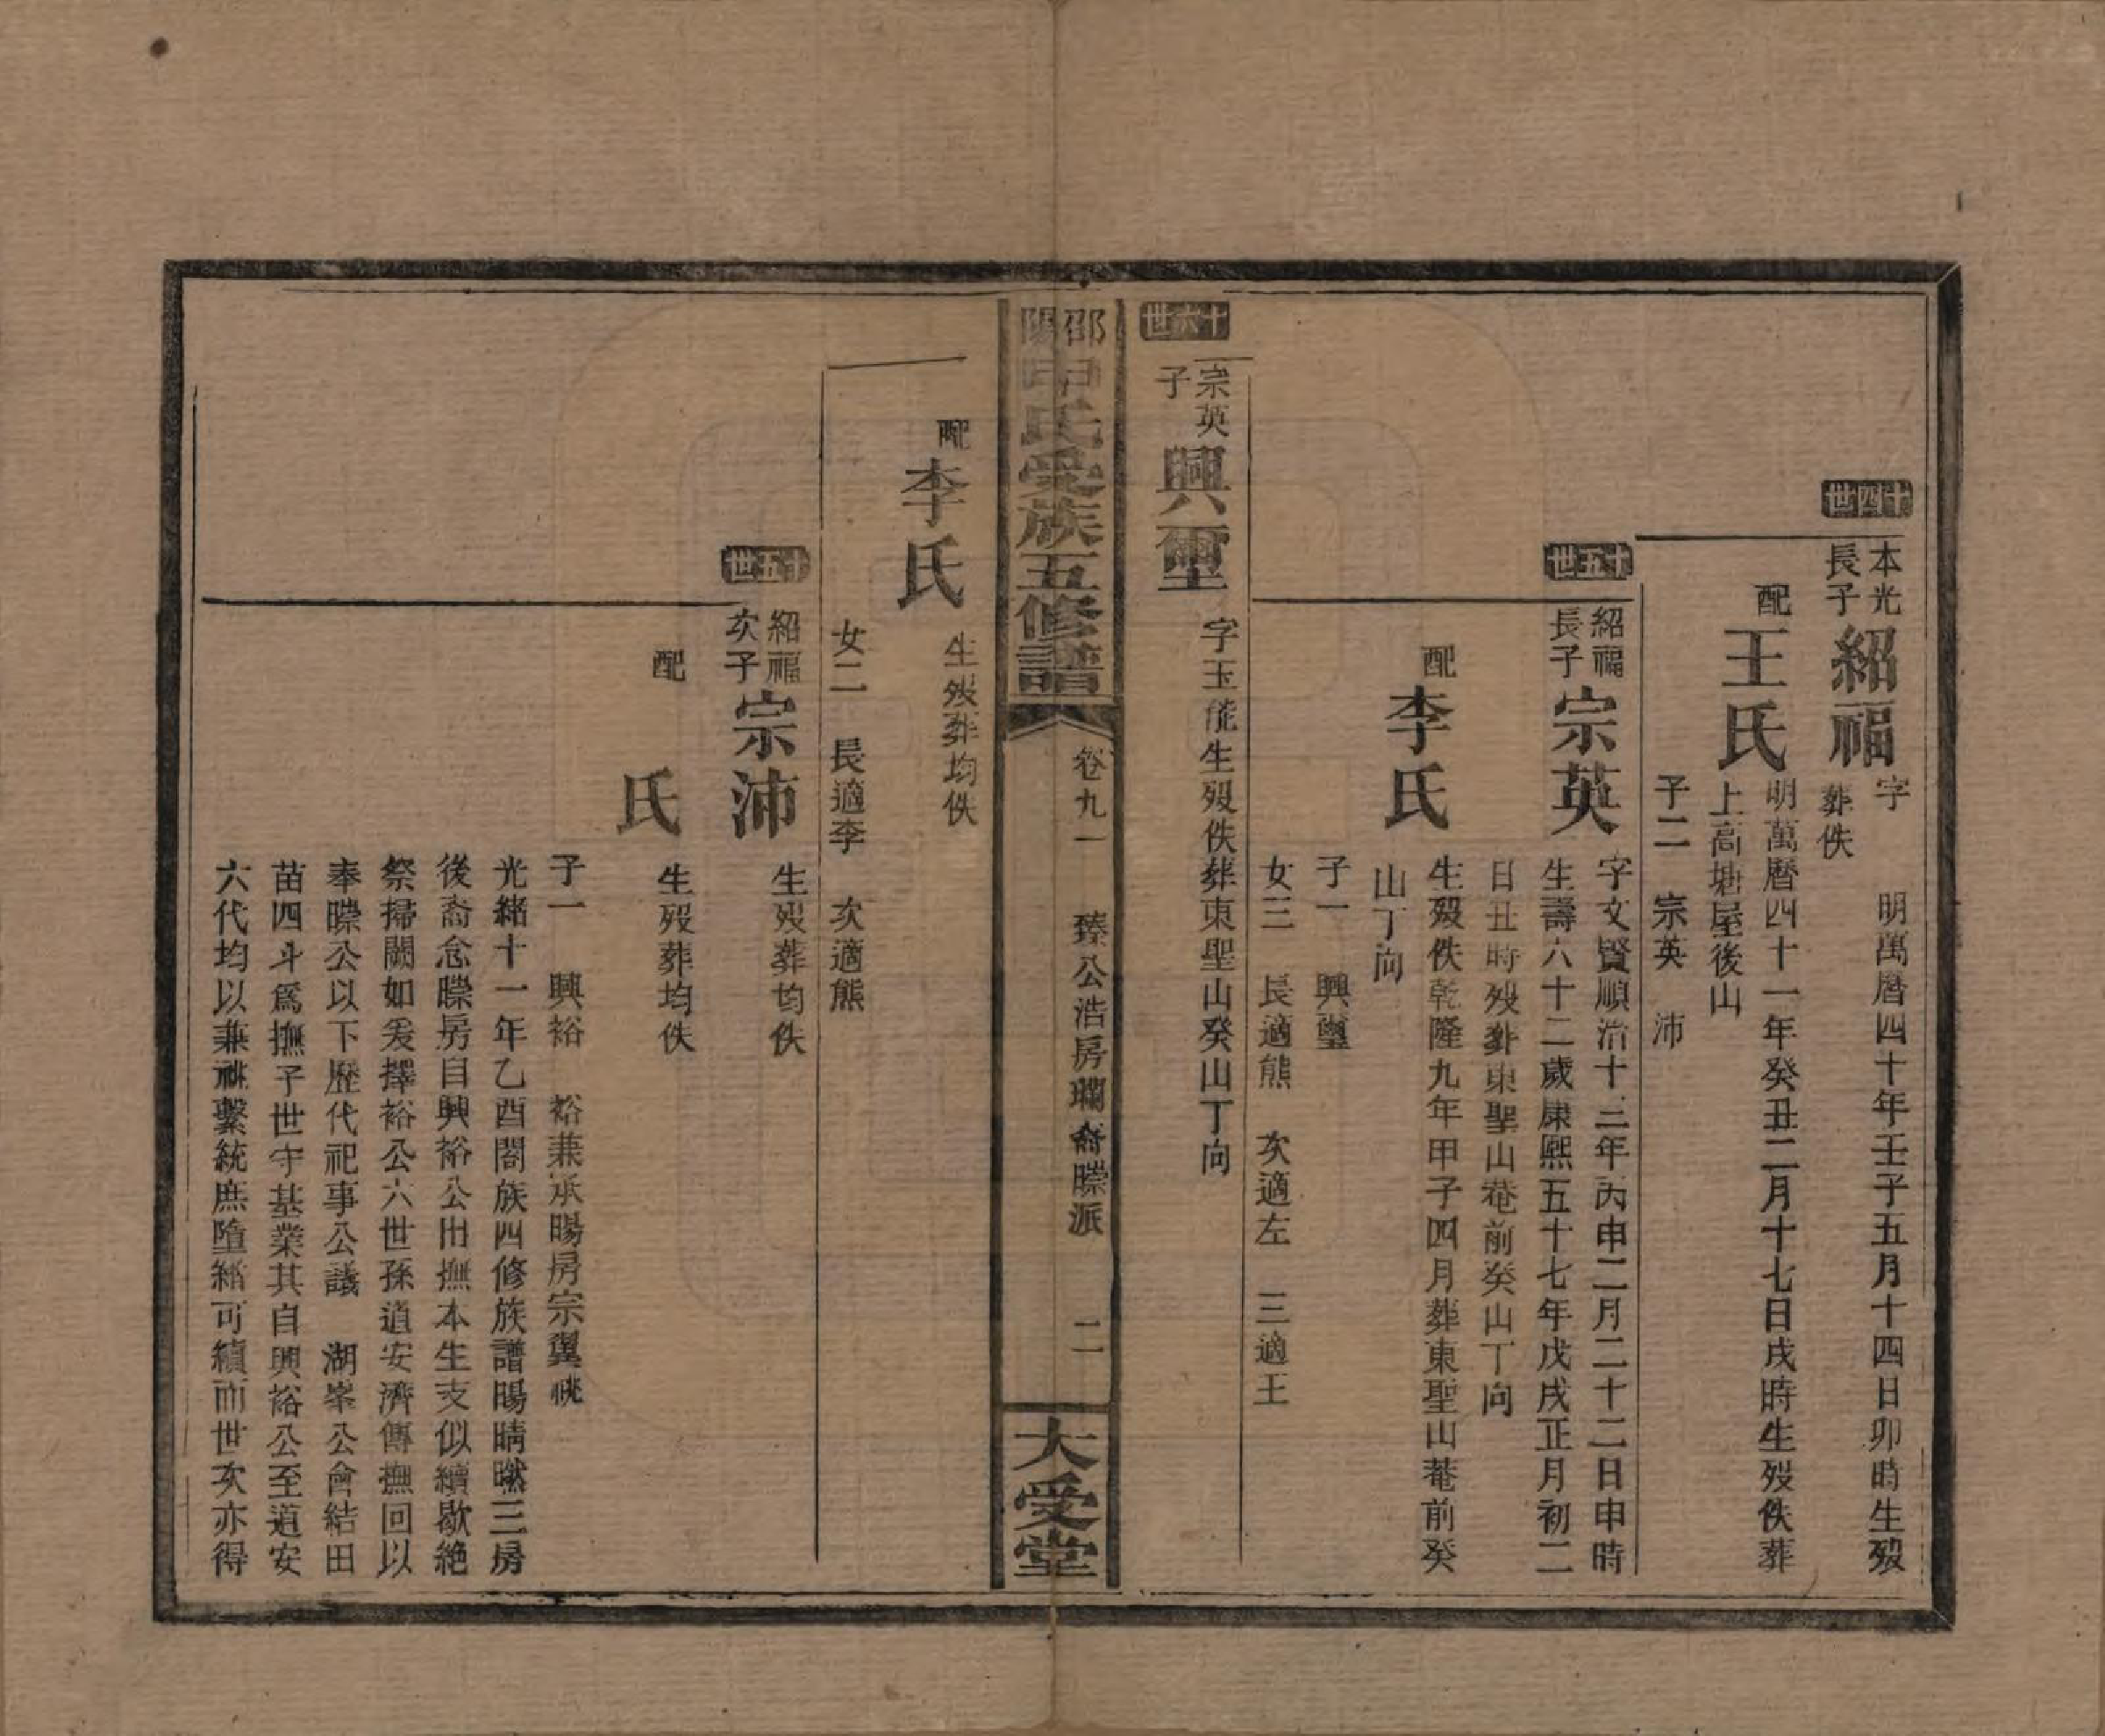 十四世
本光
長子
紹福
字　明萬曆四十年壬子五月十四日卯時生歿
葬佚
配
王氏
明萬曆四十一年癸丑二月十七日戌時生歿佚葬
上高塘屋後山
子二　宗英　沛
十五世
紹福
長子
宗英
字文賢順治十三年丙申二月二十二日申時
生壽六十二歲康熙五十七年戊戌正月初二
日丑時歿葬東聖山菴前癸山丁向
配
李氏
生歿佚乾隆九年甲子四月葬東聖山菴前癸
山丁向
子一　興璽
女三　長適熊　次適左　三適王
十六世
宗英
子
興璽
字玉能生歿佚葬東聖山癸山丁向
邵陽
申氏受族五修譜
卷九一　臻公浩房瓓裔㬥派　二
大受堂
配
李氏
生歿葬均佚
女二　長適李　次適熊
十五世
紹福
次子
宗沛
生歿葬均佚
配
氏
生歿葬均佚
子一　興裕　裕兼承暘房宗翼祧
光緒十一年乙酉閤族四修族譜暘晴三房
後裔念房自興裕公出撫本生支似續歇絶
祭掃闕如爰擇裕公六世孫道安濟傳撫回以
奉公以下歷代祀事公議　湖峯公會結田
苗四斗爲撫子世守基業其自興裕公至道安
六代均以兼祧繫統庶墮緒可續而世次亦得